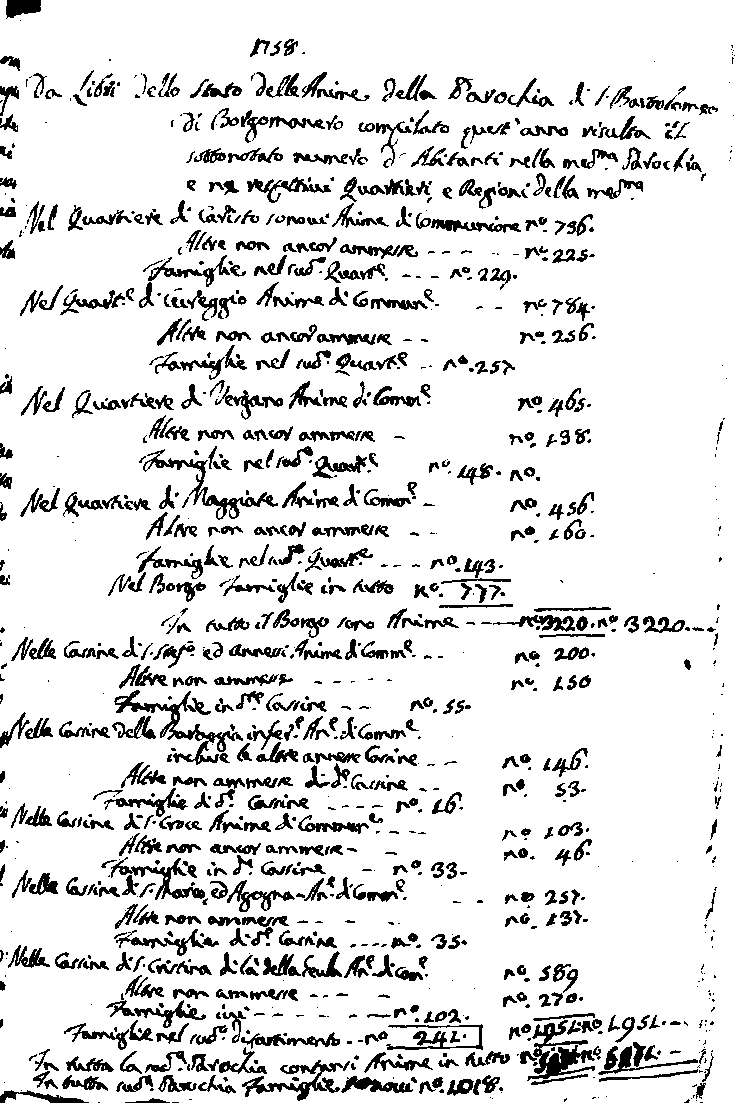 1758.
Da Libri dello Stato delle Anime della Parochia di S. Bartolomeo
di Borgomanero compilato quest'anno risulta il
sottonotato numero d'Abitanti nella med.ma Parochia,
e ne respettivi Quartieri, e Regioni della med.ma
Nel Quartiere di Caristo sonovi Anime di Communione n.o 736.
Altre non ancor ammesse - - - - - n.o 225.
Famiglie nel sud.o Quart.e - - - - n.o 229.
Nel Quart.e di Cureggio Anime di Commun.e - - n.o 784.
Altre non ancor ammesse - - n.o 256.
Famiglie nel sud.o Quart.e - - n.o 257
Nel Quartiere di Vergano Anime di Comm.e n.o 465.
Altre non ancor ammesse - n.o 138.
Famiglie nel sud.o Quart.e n.o 148. n.o.
Nel Quartiere di Maggiate Anime di Comm.e - n.o 456.
Altre non ancor ammesse - - n.o 160.
Famiglie nel sud.o Quart.e - - - - n.o 143.
Nel Borgo Famiglie in tutto n.o 777.
In tutto il Borgo sono Anime - - - - n.o 3220. n.o 3220. - - -
Nelle Cassine di S. Stef.o ed annessi Anime di Comm.e - - - n.o 200.
Altre non ammesse - - - - - n.o 150
Famiglie in d.te Cassine - - n.o 55.
Nelle Cassine della Barbagia infer.e An.e di Comm.e
incluse le altre annesse Cassine - - n.o 146.
Altre non ammesse di d.e Cassine - - n.o 53.
Famiglie di d.e Cassine - - - - n.o 16.
Nelle Cassine di S. Croce Anime di Commun.e - - - n.o 103.
Altre non ancor ammesse - - n.o 46.
Famiglie in d.e Cassine - n.o 33.
Nelle Cassine di S. Marco, ed Agogna An.e di Comm.e n.o 257.
Altre non ammesse - - - - n.o 137.
Famiglie di d.e Cassine - - - - n.o 35.
Nelle Cassine di S. Cristina di là della An.e di Com.e n.o 589
Altre non ammesse - - - - n.o 270.
Famiglie ivi - - - - - - n.o 102.
Famiglie nel sud.o distrettimento - - n.o 241. n.o 1951. n.o 1951. - - -
In tutta la sud.a Parochia contansi Anime in tutto n.o 5171. n.o 5171. - -
In tutta sud.a Parochia Famiglie sonovi n.o 1018.